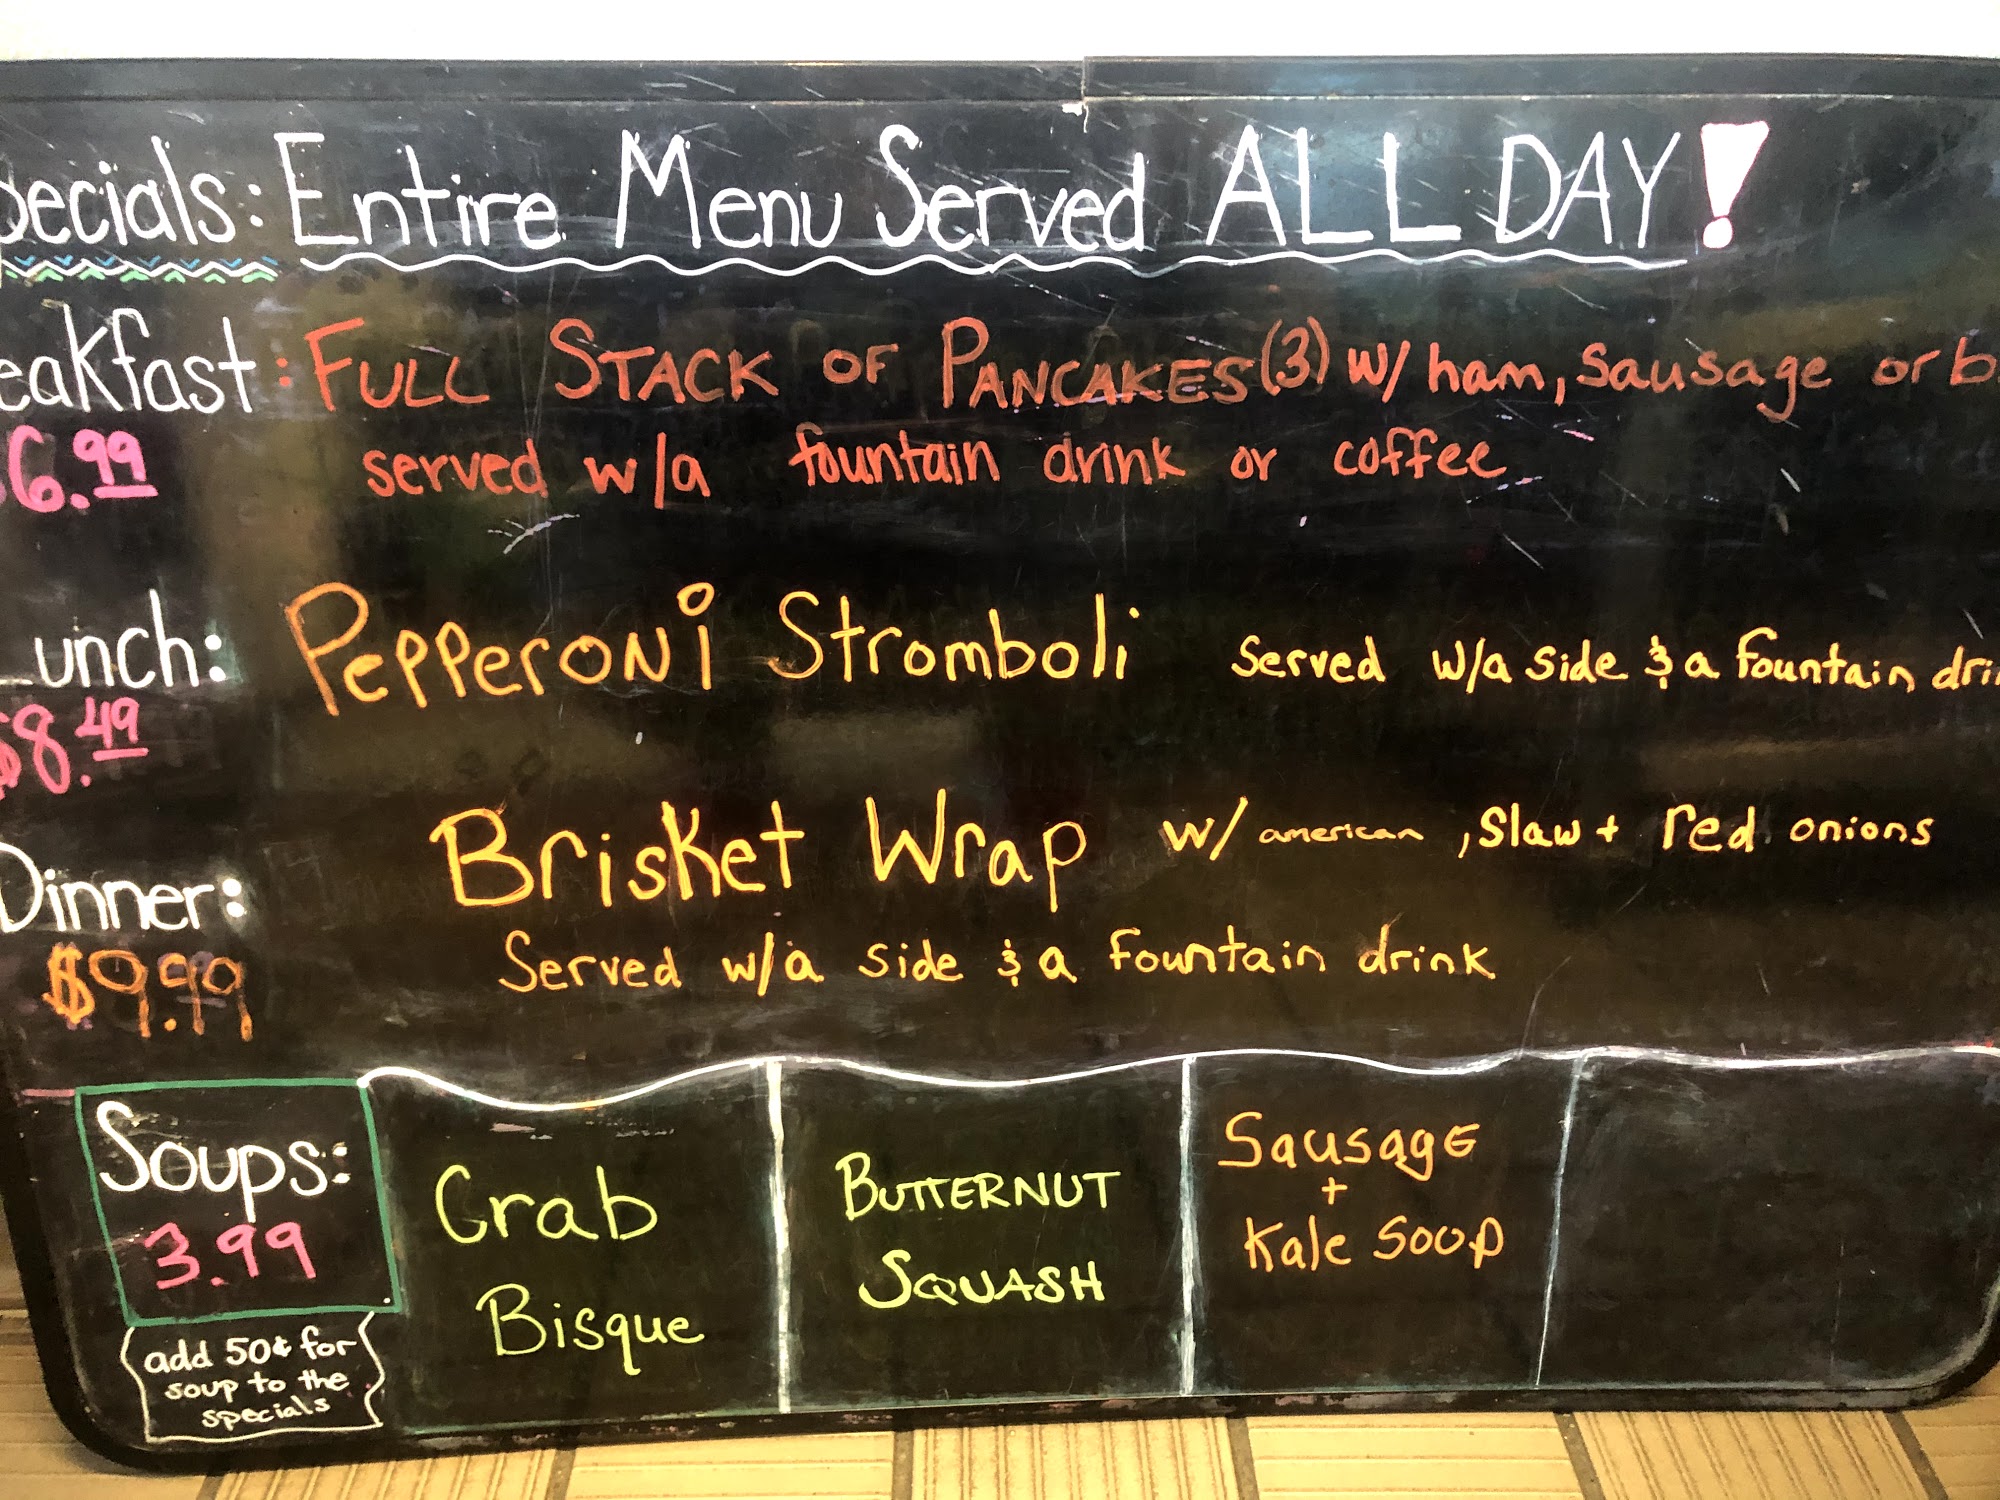 pecials: Entire Menu Served ALL DAY!
eakfast: FULL STACK OF PANCAKES (3) w/ ham, sausage or b
$6.99 served w/a fountain drink or coffee
Lunch: PEPPERONi Stromboli Served w/a side & a fountain drin
$8.49
Brisket Wrap w/ american, Slaw + red onions
Dinner:
$9.99 Served w/a side & a fountain drink
Soups:
3.99
add 50¢ for
soup to the
specials
Crab
Bisque
BUTTERNUT
SQUASH
Sausage
+
Kale Soup